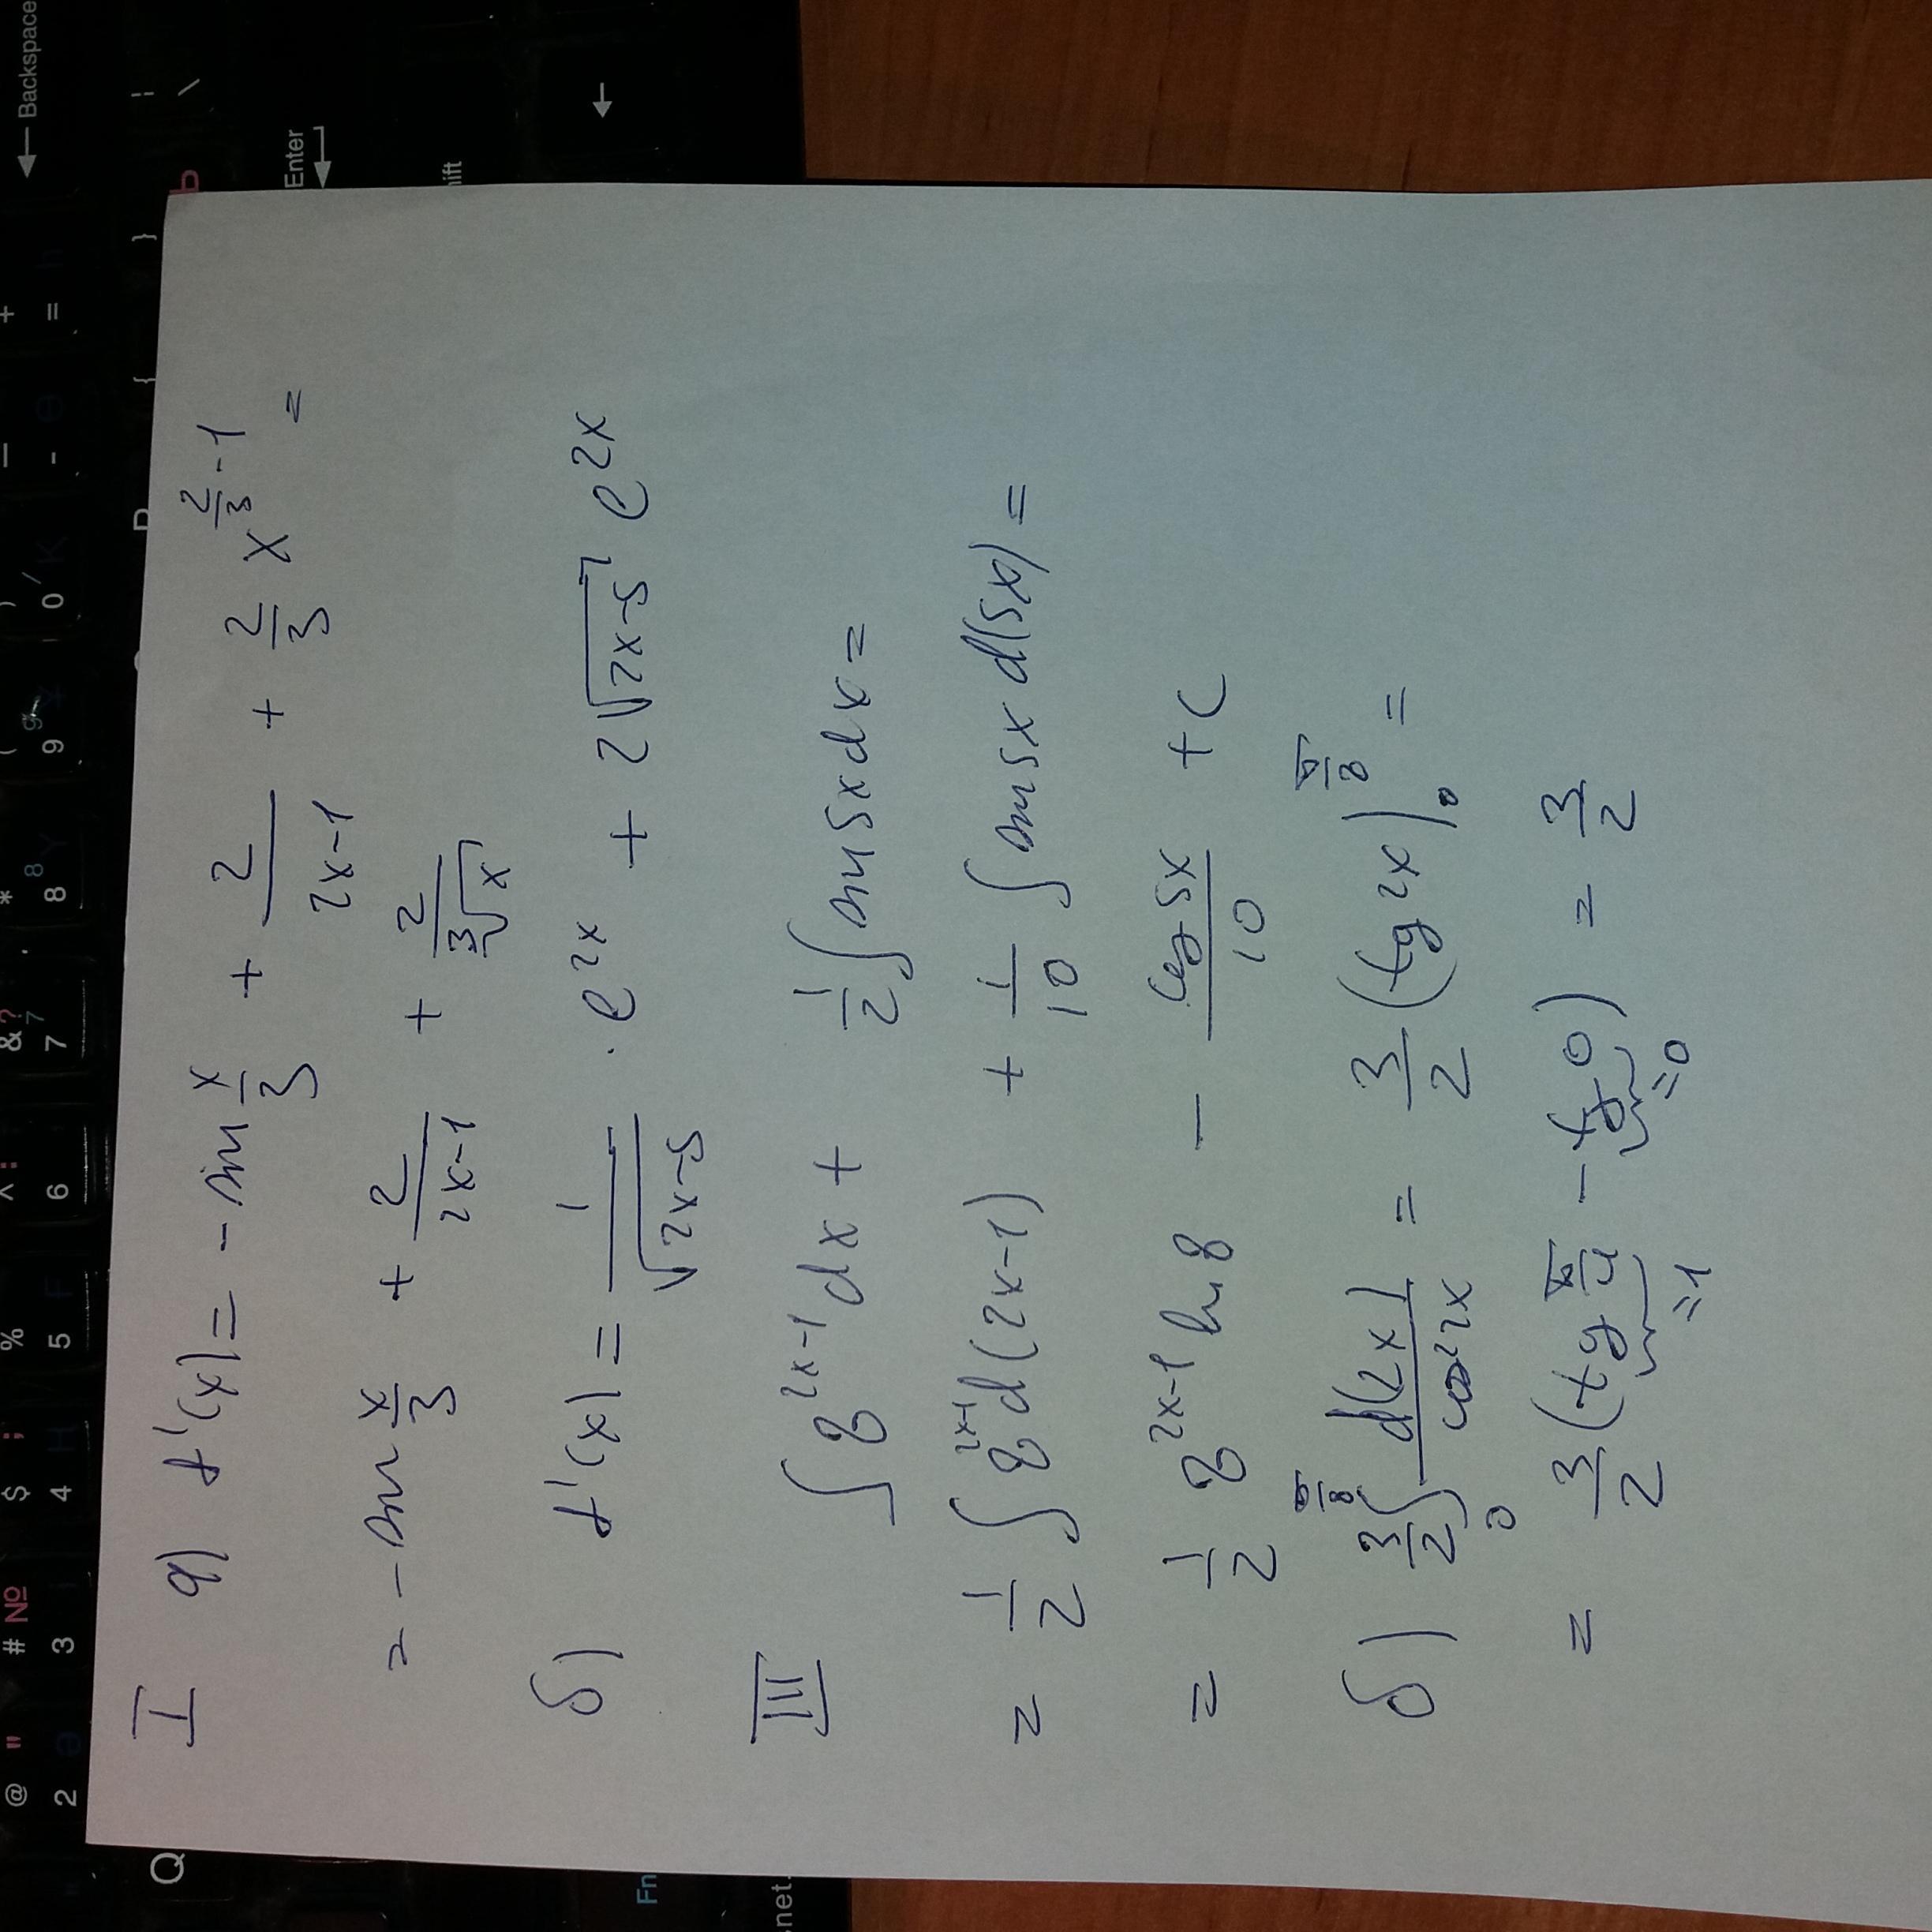 I а) f'(x) = - sin x/3 + 2/(2x-1) + 2/3 x^(2/3 - 1) =
= - sin x/3 + 2/(2x-1) + 2/(3∛x)
б) f'(x) = 1/√(2x-5) · e^(2x) + 2√(2x-5) e^(2x)
III ∫ 8^(2x-1) dx + 1/2 ∫ sin 5x dx =
= 1/2 ∫ 8^(2x-1) d(2x-1) + 1/10 ∫ sin 5x d(5x) =
= 1/2 8^(2x-1) ln 8 - cos 5x/10 + C
б) 3/2 ∫_0^(π/8) d(2x)/cos² 2x = 3/2 (tg 2x)|_0^(π/8) =
= 3/2 (tg π/4 - tg 0) = 3/2
=1 =0
← Backspace
Enter
ift
Fn
snet.
@ " # № $ ; % ^ : & ? * ( ) _ +
2 3 4 5 6 7 8 9 0 - =
Q { } Ъ